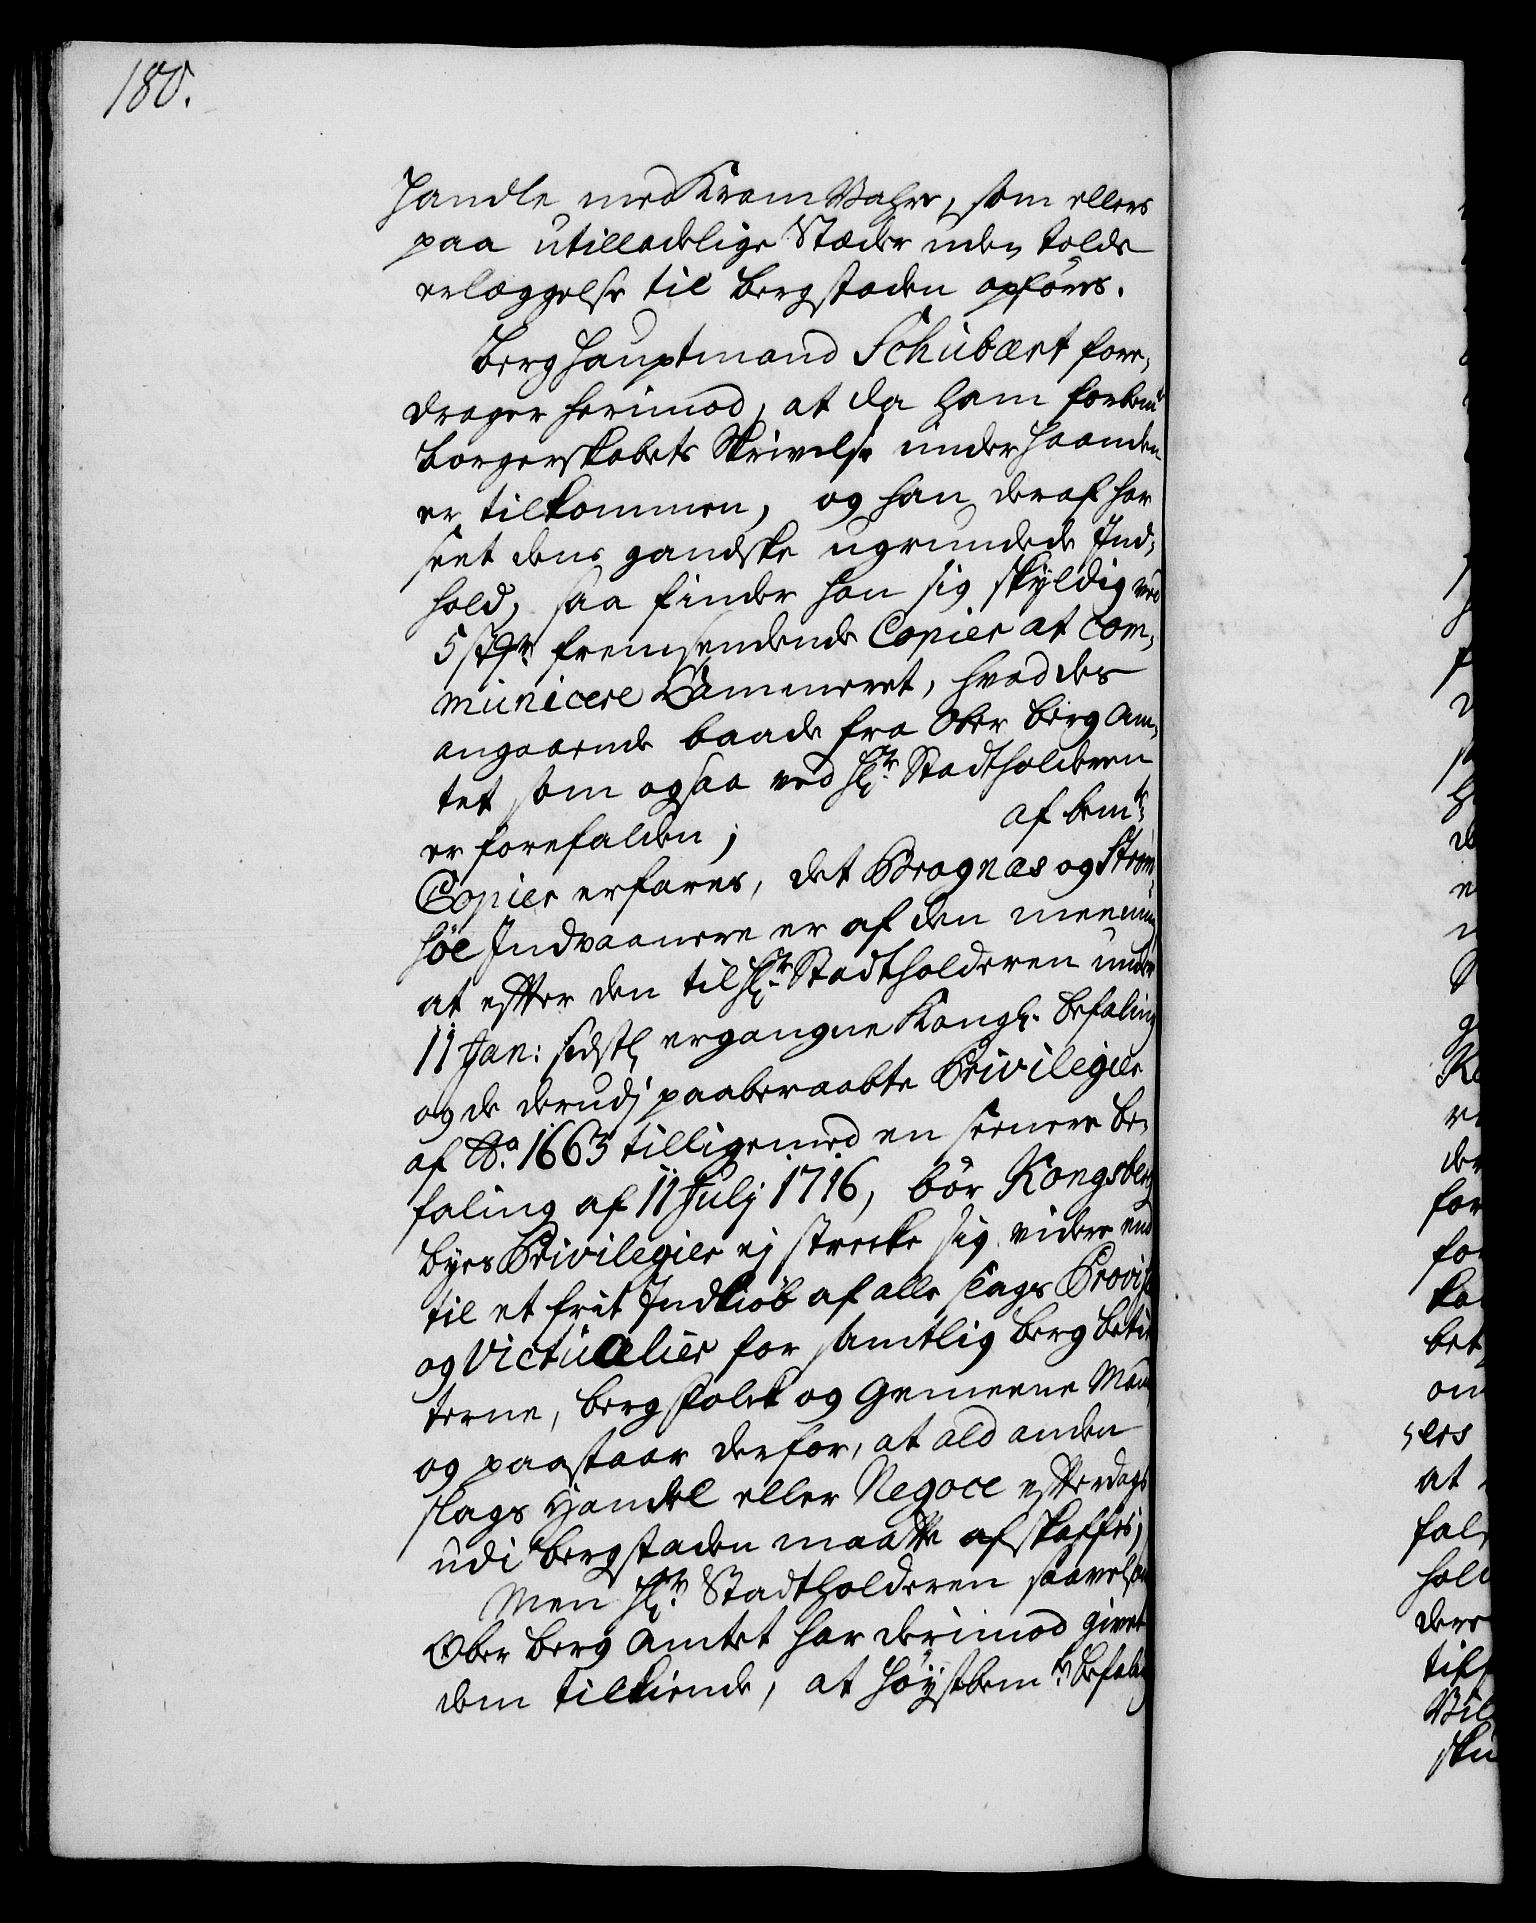 180.
Handle med Kram Vahre, som ellers
paa utilladelige Stæder uden Tolds
erlæggelse til Bergstaden opføres.
Berg Hauptmand Schubært fore,
drager herimod, at da ham forbem.te
borgerskabets Skrivelse under haanden
er tilkommen, og han deraf har
seet dens gandske ugrundede Ind,
hold, saa finder han sig skyldig ved
5 st fremsendende Copier at com,
municere Cammeret, hvad des
angaaende baade fra Ober Berg Am,
tet som ogsaa ved Hr. Stadtholderen
er forefalden; af bem.te
Copier erfares, det Bragnæs og Strøm,
søe Indvaanere er af den meening
at efter den til Hr. Stadtholderen under
11 Jan: sidstl. ergangne Kongl. Befaling
og de derudj paaberaabte Privilegier
af Ao. 1663 tilligemed en seenere Be,
faling af 11 Julj 1716, bør Kongsberg
byes Privilegier ej strecke sig videre end
til et frit Indkiøb af alle slags Provis
og Victualier for samtlig Berg Betien
terne, Bergfolk og Gemeene Mand
og paastaar derfor, at ald anden
slags Handel eller Negoce efterdags
udi Bergstaden maatte afskaffes;
Men Hr. Stadtholderen saavelsom
Ober Berg Amtet har derimod givet
dem tilkiende, at høystbem.te Befaling